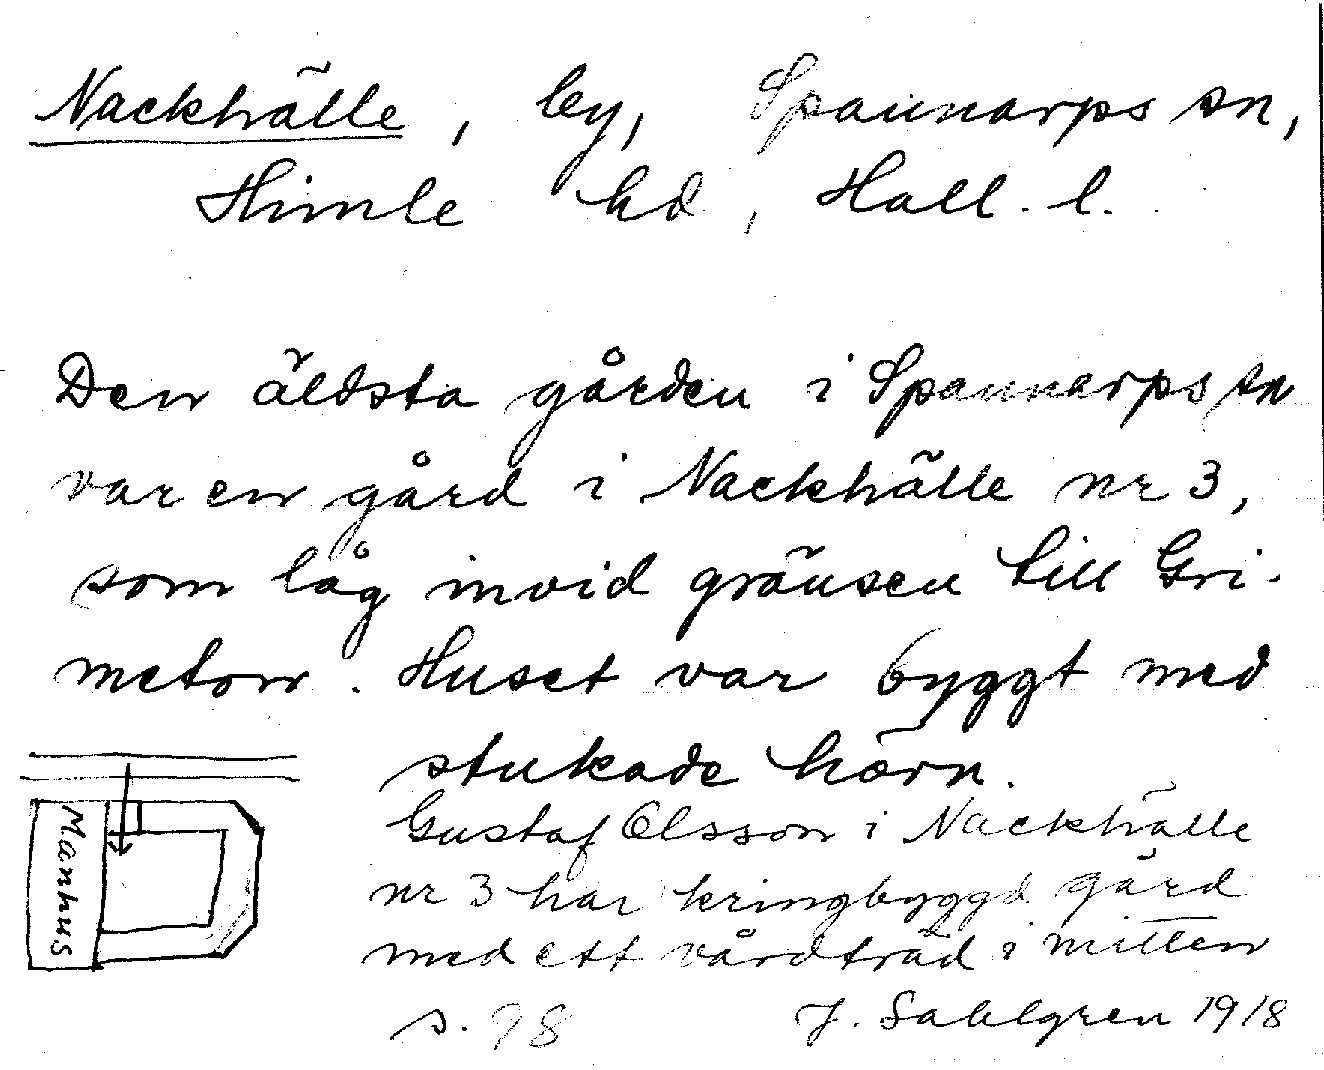 Nackhälle, by, Spannarps sn,
Himle hd, Hall. l.
Den äldsta gården i Spannarps sn
var en gård i Nackhälle nr 3,
som låg invid gränsen till Gri-
meton. Huset var byggt med
stukade hörn.
Manhus
Gustaf Olsson i Nackhälle
nr 3 har kringbyggd gård
med ett vårdträd i mitten
s. 98
J. Sahlgren 1918